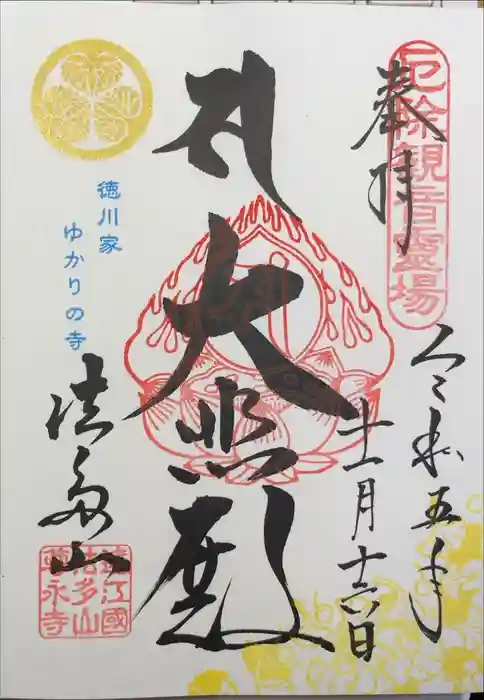 奉拝
厄除観音霊場
令和五年
十一月十六日
大悲殿
徳川家
ゆかりの寺
法多山
遠江國
法多山
尊永寺